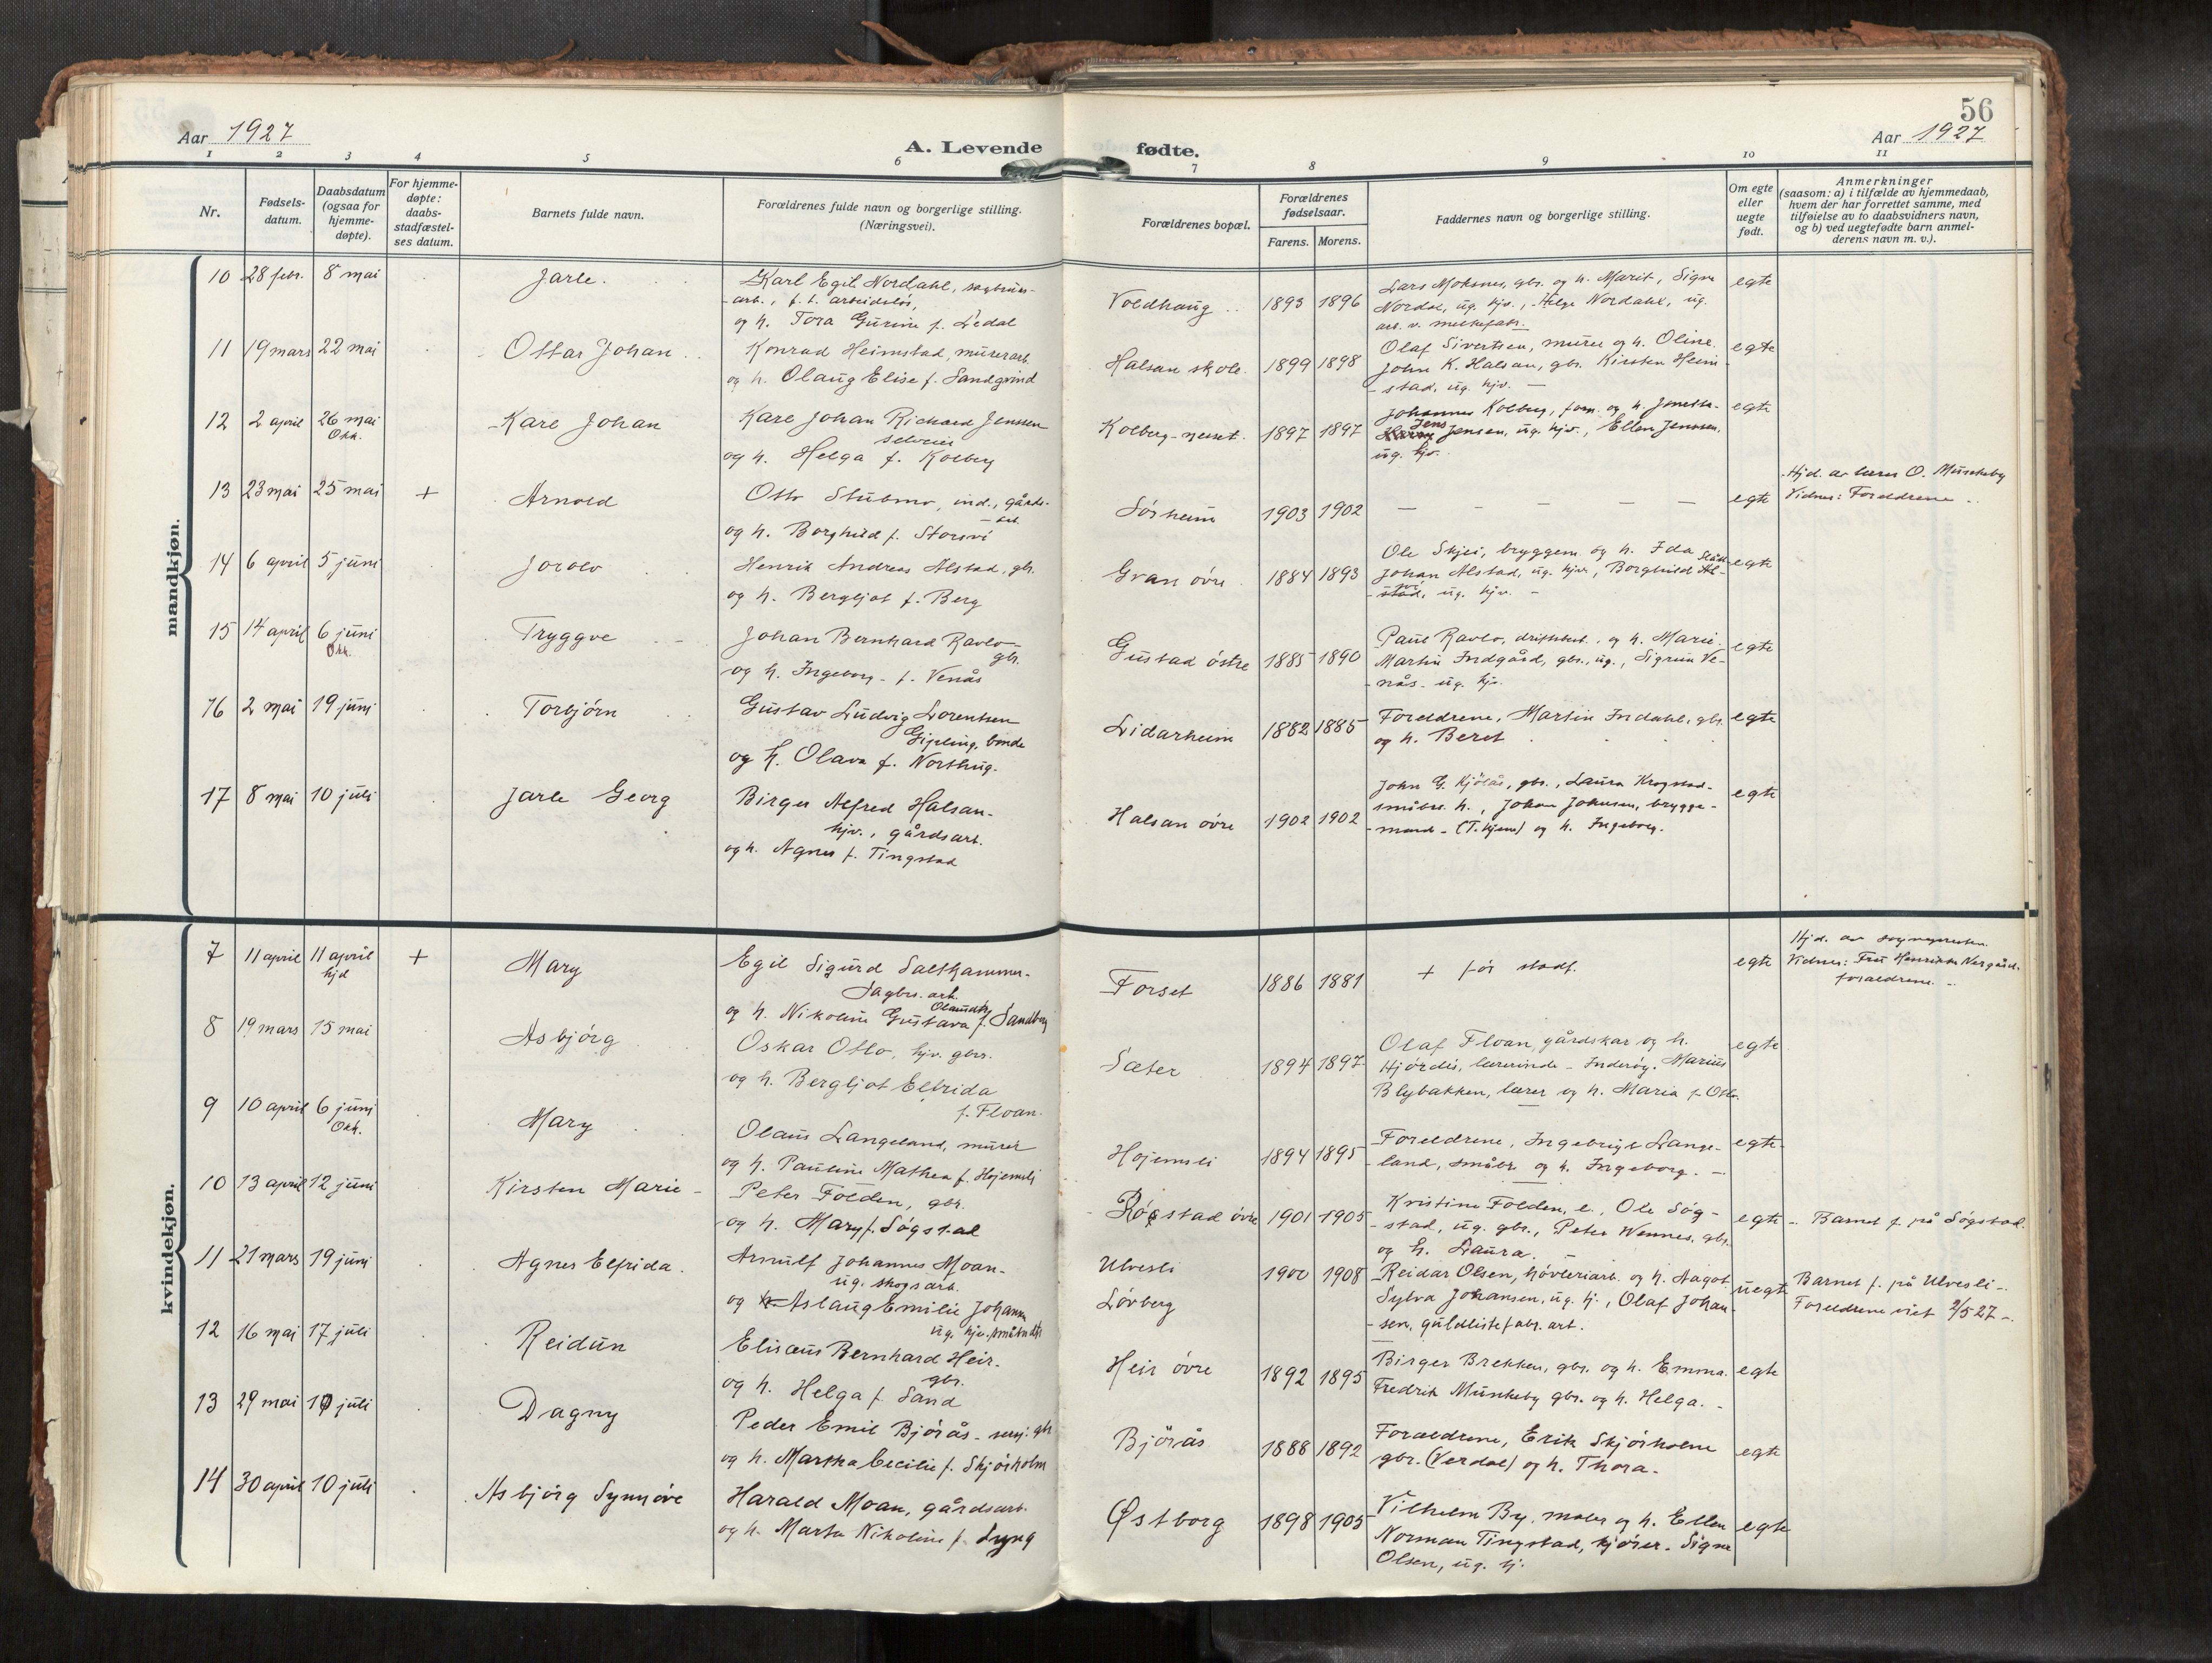 56
Aar 1927
A. Levende fødte.
Aar 1927
1 2 3 4 5 6 7 8 9 10 11
Nr.
Fødsels-
datum.
Daabsdatum
(ogsaa for
hjemme-
døpte).
For hjemme-
døpte:
daabs-
stadfæstel-
ses datum.
Barnets fulde navn.
Forældrenes fulde navn og borgerlige stilling.
(Næringsvei).
Forældrenes bopæl.
Forældrenes
fødselsaar.
Farens. Morens.
Faddernes navn og borgerlige stilling.
Om egte
eller
uegte
født.
Anmerkninger
(saasom: a) i tilfælde av hjemmedaab,
hvem der har forrettet samme, med
tilføielse av to daabsvidners navn,
og b) ved uegtefødte barn anmel-
derens navn m. v.).
mandkjøn.
10 28 febr. 8 mai Jarle.
Karl Egil Nordahl, sagbruks-
arb., f. t. arbeidsløs,
og h. Tora Gurine f. Ledal
Voldhaug 1893 1896
Lars Moksnes, gbr. og h. Marit, Signe
Nordal, ug. hjv., Helge Nordahl, ug.
arb. v. melkefabr.
egte
11 19 mars 22 mai Ottar Johan
Konrad Heimstad, murerarb.
og h. Olaug Elise f. Sandgrind
Halsan skole. 1899 1898
Olaf Sivertsen, murer og h. Oline.
John K. Halsan, gbr. Kirsten Heim-
stad, ug. hjv. —
egte
12 2 april 26 mai Kåre Johan
Okk.
Kåre Johan Richard Jenssen
selveier
og h. Helga f. Kolberg
Kolberg-neset. 1897 1897
Johannes Kolberg, form. og h.
Jens Jensen, ug. hjv., Ellen Jenssen,
ug. hjv.
egte
13 23 mai 25 mai + Arnold
Otto Stubmo, ind., gårds-
arb.
og h. Borghild f. Storsvé
Sörheim 1903 1902 — — — — —
egte
Hjd. av lærer O. Munkeby
Vidner: Foreldrene
14 6 april 5 juni Jorolv
Henrik Andreas Alstad, gbr.
og h. Bergljot f. Berg
Gran övre 1884 1893
Ole Skjei, bryggem. og h. Ida
Johan Alstad, ug. hjv., Borghild Al-
stad, ug. hjv. -
egte
15 14 april 6 juni Tryggve
Okk.
Johan Bernhard Ravlo
gbr.
og h. Ingeborg f. Venås
Gustad östre 1885 1890
Paul Ravlo, driftsbest., og h. Marie.
Martin Indgård, gbr., ug., Sigrun Ve-
nås. ug. hjv.
egte
16 2 mai 19 juni Torbjörn
Gustav Ludvig Lorentsen
Gipling, bonde
og h. Olava f. Northug.
Lidarheim 1882 1885
Foreldrene, Martin Indahl, gbr.
og h. Beret
egte
17 8 mai 10 juli Jarle Georg
Birger Alfred Halsan
hjv., gårdsarb.
og h. Agnes f. Tingstad
Halsan övre 1902 1902
John G. Kjölås, gbr., Laura Krogstad
småbr. h., Johan Johnsen, brygge-
mand og h. Ingeborg.
egte
kvindekjøn.
7 11 april 11 april + Mary
hjd
Egil Sigurd Salthammer
Sagbr. arb.
Olausdtr.
og h. Nikoline Gustava f. Sandberg
Forset 1886 1881
+ för stadf.
egte
Hjd. av sognepresten.
Vidner: Fru Henrikke Nergård.
foreldrene. -
8 19 mars 15 mai Asbjörg
Oskar Otlo, hjv. gbrs.
og h. Bergljot Elfrida
f. Floan.
Sæter 1894 1897
Olaf Floan, gårdskar og h.
Hjördis, lærerinde - Inderöy. Marius
Blybakken, lærer og h. Maria f. Otlo.
egte
9 10 april 6 juni Mary
Okk.
Olaus Langeland, murer
og h. Pauline Mathea f. Hojemsli
Hojemsli 1894 1895
Foreldrene, Ingebrigt Lange-
land, småbr. og h. Ingeborg. -
egte
10 13 april 12 juni Kirsten Marie
Peter Folden, gbr.
og h. Mary f. Søgstad
Røstad övre 1901 1905
Kristine Folden, e., Ole Søg-
stad, ug. gbr., Peter Wennes, gbr.
og h. Laura.
egte
Barnet f. på Søgstad.
11 21 mars 19 juni Agnes Elfrida.
Arnulf Johannes Moan
ug. skogsarb.
og Aslaug Emilie Johann
ug. hjv. småbr.dtr
Ulvesli
Lövberg
1900 1908
Reidar Olsen, hövleriarb. og h. Aagot
Sylva Johansen, ug. hj., Olaf Johan-
sen, guldlistefabr. arb.
uegte
Barnet f. på Ulvesli -
Foreldrene viet 2/5 27 -.
12 16 mai 17 juli Reidun
Elisæus Bernhard Heir
gbr.
og h. Helga f. Sand
Heir övre 1892 1895
Birger Brekken, gbr. og h. Emma.
Fredrik Munkeby gbr. og h. Helga. -
egte
13 29 mai 10 juli Dagny
Peder Emil Björås - serj. gbr
og h. Martha Cecilie f. Skjörholm
Björås 1888 1892
Foreldrene, Erik Skjörholm
gbr. (Verdal) og h. Thora.
egte
14 30 april 10 juli Asbjörg Synnöve
Harald Moan, gårdsarb.
og h. Marta Nikoline f. Lyng
Østborg 1898 1905
Vilhelm By, maler og h. Ellen
Norman Tingstad, kjörer. Signe
Olsen, ug. hj.
egte